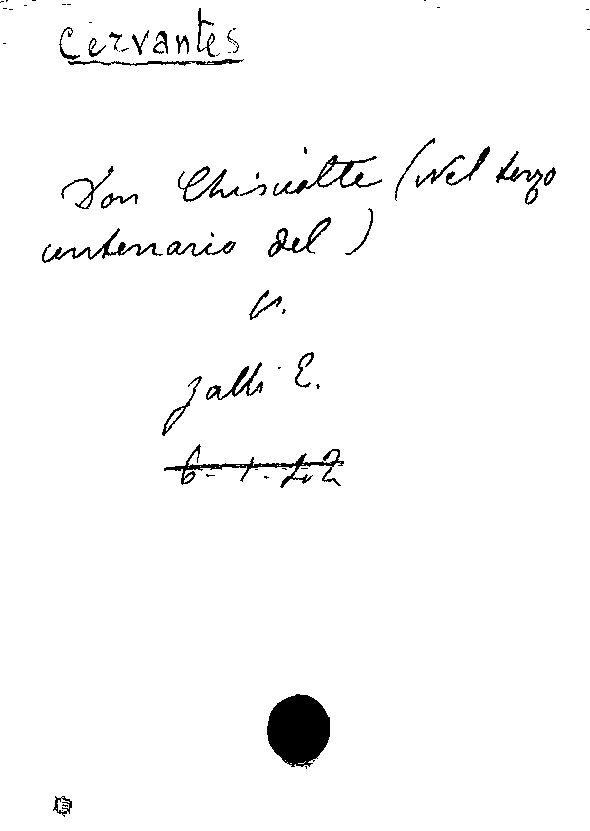 Cervantes
Don Chisciotte (Nel terzo
centenario del)
v.
Zalli E.
6-1-